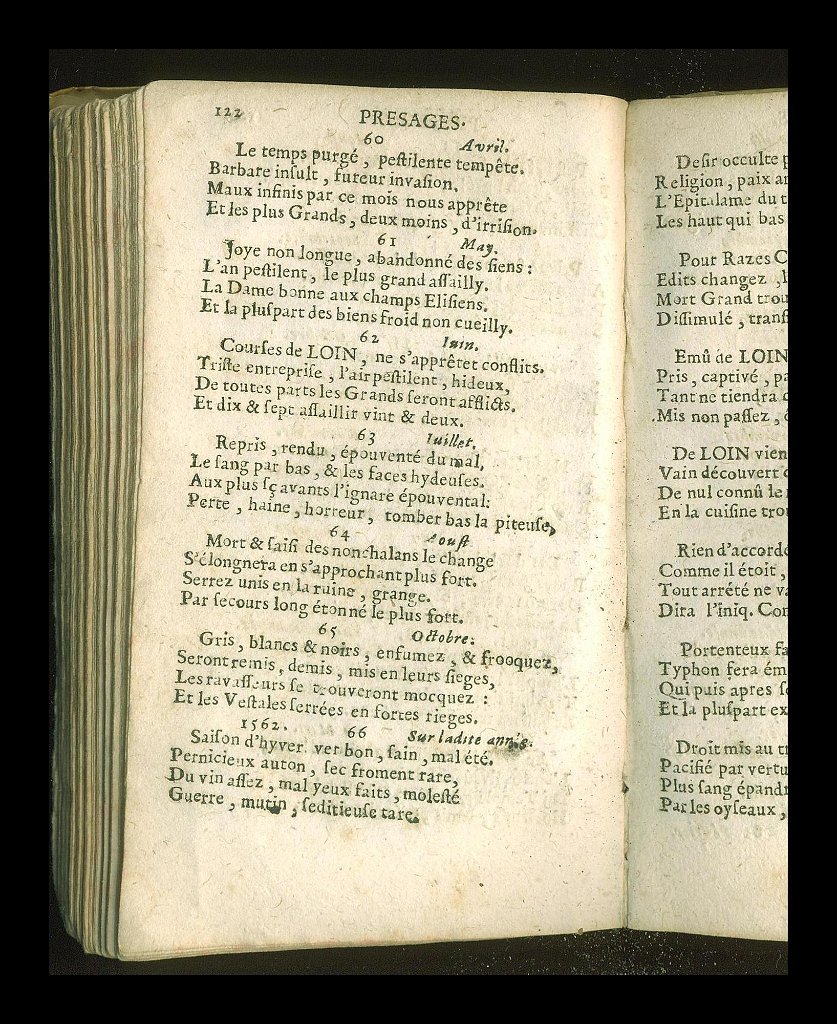 122 PRESAGES.
60 Avril.
Le temps purgé, peſtilente tempête.
Barbare inſult, fureur invaſion.
Maux infinis par ce mois nous apprête
Et les plus Grands, deux moins, d'irriſion.
61 May.
Joye non longue, abandonné des ſiens :
L'an peſtilent, le plus grand aſſailly.
La Dame bonne aux champs Eliſiens.
Et la pluſpart des biens froid non cueilly.
62 Iuin.
Courſes de LOIN, ne s'apprêter conflits.
Triſte entrepriſe, l'air peſtilent, hideux,
De toutes parts les Grands ſeront afflicts.
Et dix & ſept aſſaillir vint & deux.
63 Iuillet.
Repris, rendu, épouventé du mal,
Le ſang par bas, & les faces hydeuſes.
Aux plus ſçavants l'ignare épouvental:
Perte, haine, horreur, tomber bas la piteuſe,
64 Aouſt
Mort & ſaiſi des nonchalans le change
S'élongnera en s'approchant plus fort.
Serrez unis en la ruine, grange.
Par ſecours long étonné le plus fort.
65 Octobre.
Gris, blancs & noirs, enfumez, & frooquez,
Seront remis, demis, mis en leurs ſieges,
Les ravaſſeurs ſe trouveront mocquez :
Et les Veſtales ſerrées en fortes rieges.
1562. 66 Sur ladite année.
Saiſon d'hyver. ver bon, ſain, mal été.
Pernicieux auton, ſec froment rare,
Du vin aſſez, mal yeux faits, moleſté
Guerre, mutin, ſeditieuſe tare.
Deſir occulte
Religion, paix
L'Epitalame du
Les haut qui bas
Pour Razes
Edits changez,
Mort Grand
Diſſimulé,
Emû de LOIN
Pris, captivé,
Tant ne tiendra
Mis non paſſez,
De LOIN
Vain découvert
De nul connû le
En la cuiſine
Rien
Comme il étoit,
Tout arrété ne
Dira l'iniq.
Portenteux
Typhon fera
Qui puis apres
Et la pluſpart
Droit mis au
Pacifié par
Plus ſang
Par les oyſeaux,